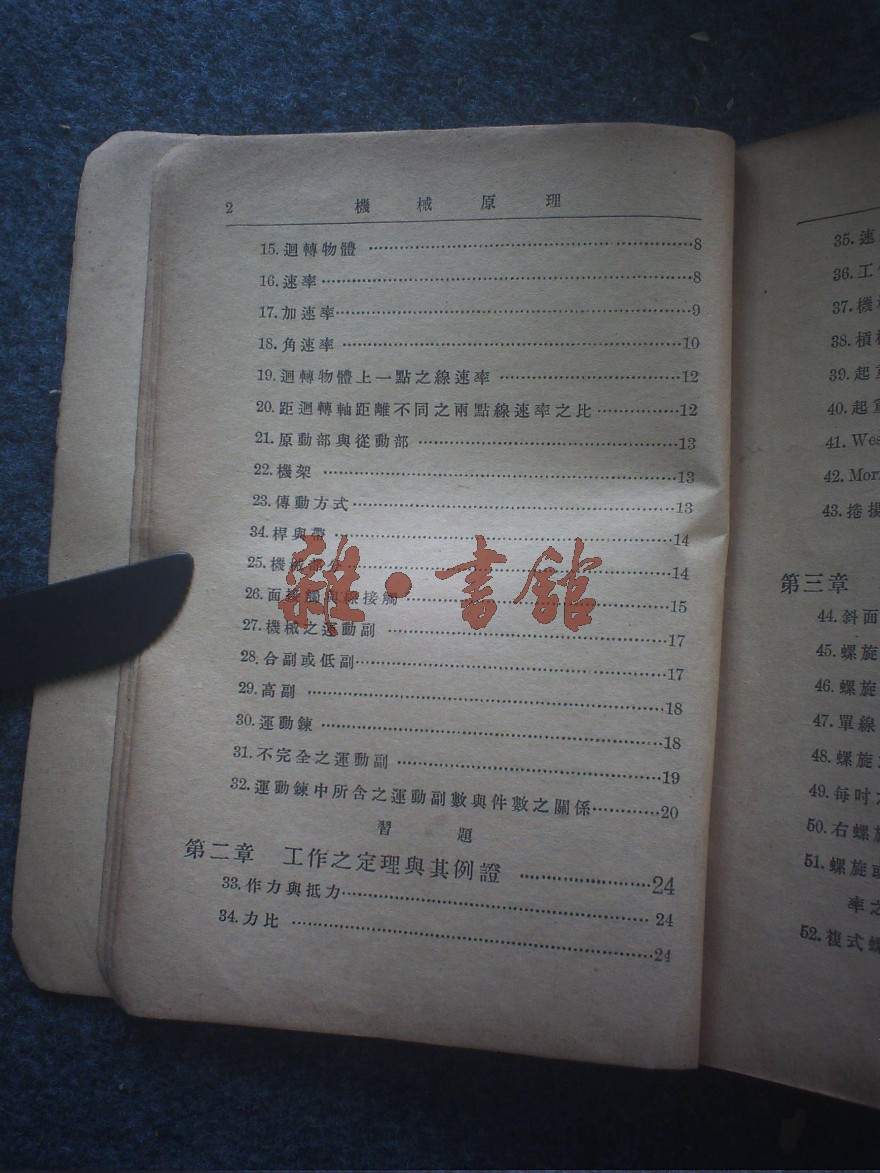 2 機械原理
15.迴轉物體 ……8
16.速率……8
17.加速率……9
18.角速率 ……10
19.迴轉物體上一點之線速率 ……12
20.距迴轉軸距離不同之兩點線速率之比……12
21.原動部與從動部 ……13
22.機架 ……13
23.傳動方式……13
34.桿與帶 ……14
25.機械部分……14
26.面接觸與線接觸 ……15
27.機械之運動副 ……17
28.合副或低副……17
29.高副 ……18
30.運動鍊 ……18
31.不完全之運動副 ……19
32.運動鍊中所含之運動副數與件數之關係……20
習題
第二章 工作之定理與其例證 ……24
33.作力與抵力……24
34.力比 ……24
雜·書館
35.速
36.工
37.機
38.槓
39.起重
40.起重
41.Wes
42.Mor
43.捲揚
第三章
44.斜面
45.螺旋
46.螺旋
47.單線
48.螺旋
49.每吋
50.右螺旋
51.螺旋或
率之
52.複式螺